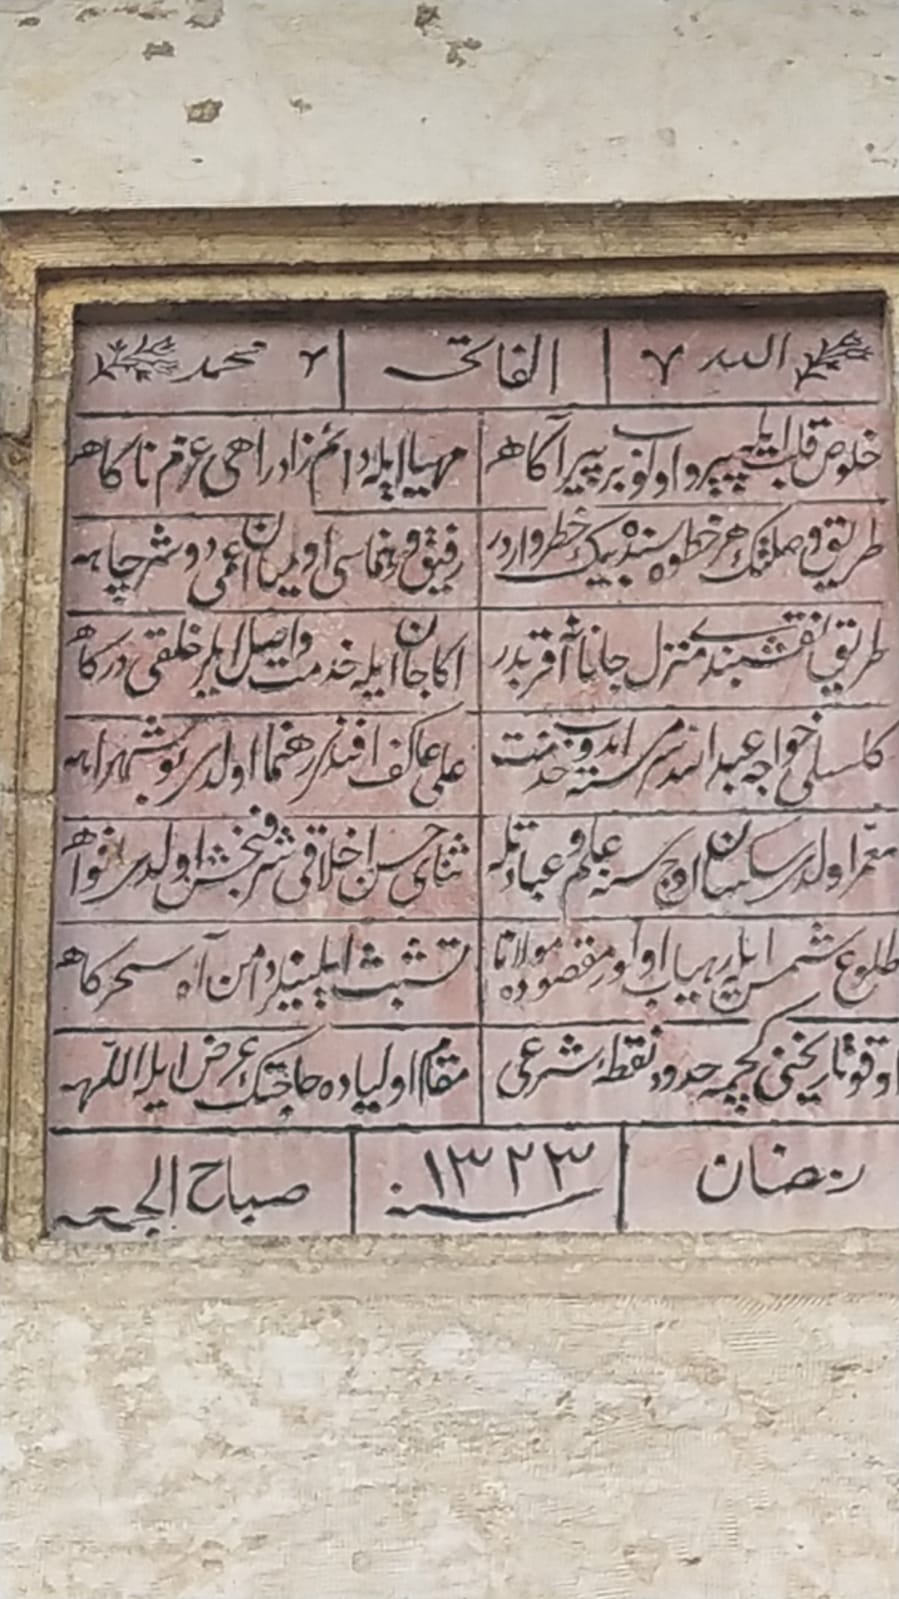 الله ٧ الفاتحه ٢ محمد
خلوص قلب ايله پيرو اولوب بر پير آكاهه مهيا ايله دائم زاد راهى عزم ناكاهه
طريق وصلتك هر خطوه سنده بيك خطر واردر رفيق ورهنماسى اولميان اعمى دوشر چاهه
طريق نقشبندى منزل جانانه اقربدر اكا جان ايله خدمت واصل ايلر خلقى دركاهه
كلسلى خواجه عبدالله سرمسته ايدوب خدمت على عاكف افندى رهنما اولدى بو شهراهه
معمر اولدى سكسان اوچ سنه علم و عبادتله ثناى حسن اخلاقى شرفبخش اولدى افواهه
طلوع شمس ايلر رهياب اولور مقصوده مولانا تشبث ايلينلر دامن آه سحركاهه
اوقو تاريخنى كچمه حدود نقطهء شرعى مقام اولياده حاجتك عرض ايله اللهه
رمضان سنه ١٣٢٣ صباح الجمعه